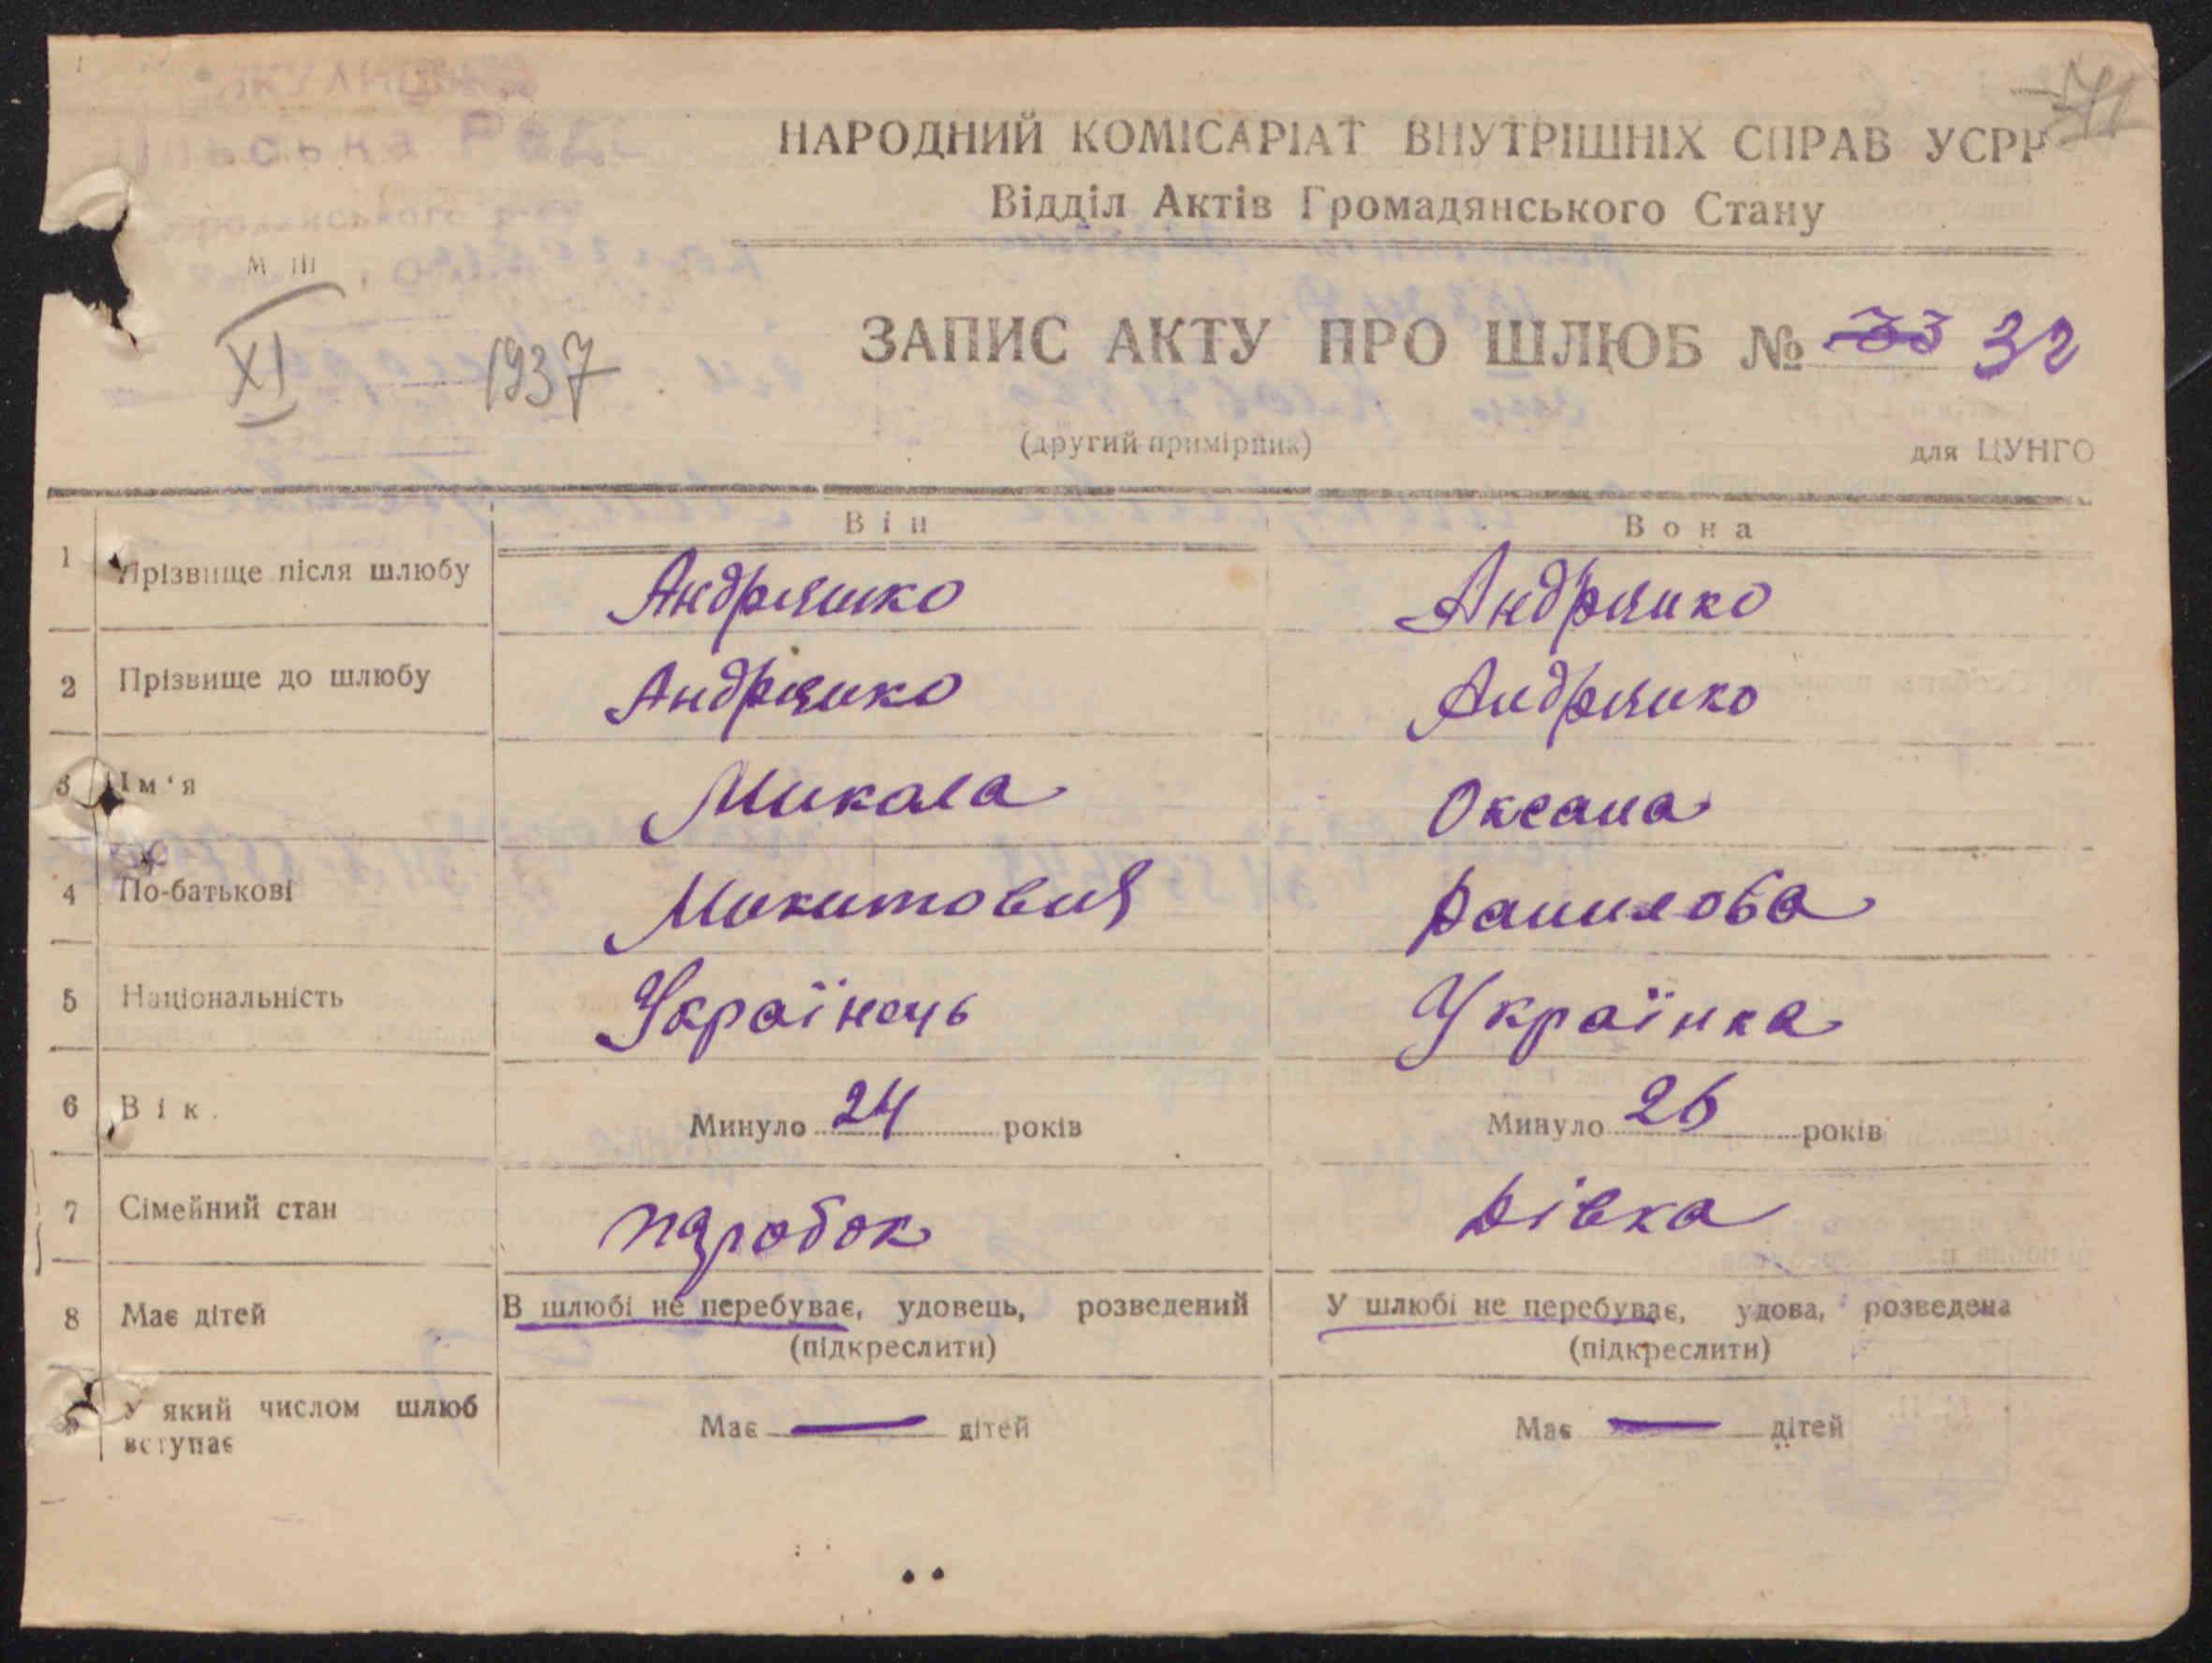 НАРОДНИЙ КОМІСАРІАТ ВНУТРІШНІХ СПРАВ УСРР
Відділ Актів Громадянського Стану
М III
XI 1937
ЗАПИС АКТУ ПРО ШЛЮБ № 33 32
(другий примірник) для ЦУНГО
Він Вона
1 Прізвище після шлюбу Андріяшко Андріяшко
2 Прізвище до шлюбу Андріяшко Андріяшко
3 Ім'я Микола Оксана
4 По-батькові Микитович Данилова
5 Національність Українець Українка
6 Вік. Минуло 24 років Минуло 26 років
7 Сімейний стан паробок дівка
8 Має дітей В шлюбі не перебуває, удовець, розведений У шлюбі не перебуває, удова, розведена
(підкреслити) (підкреслити)
У який числом шлюб вступає Має — дітей Має — дітей